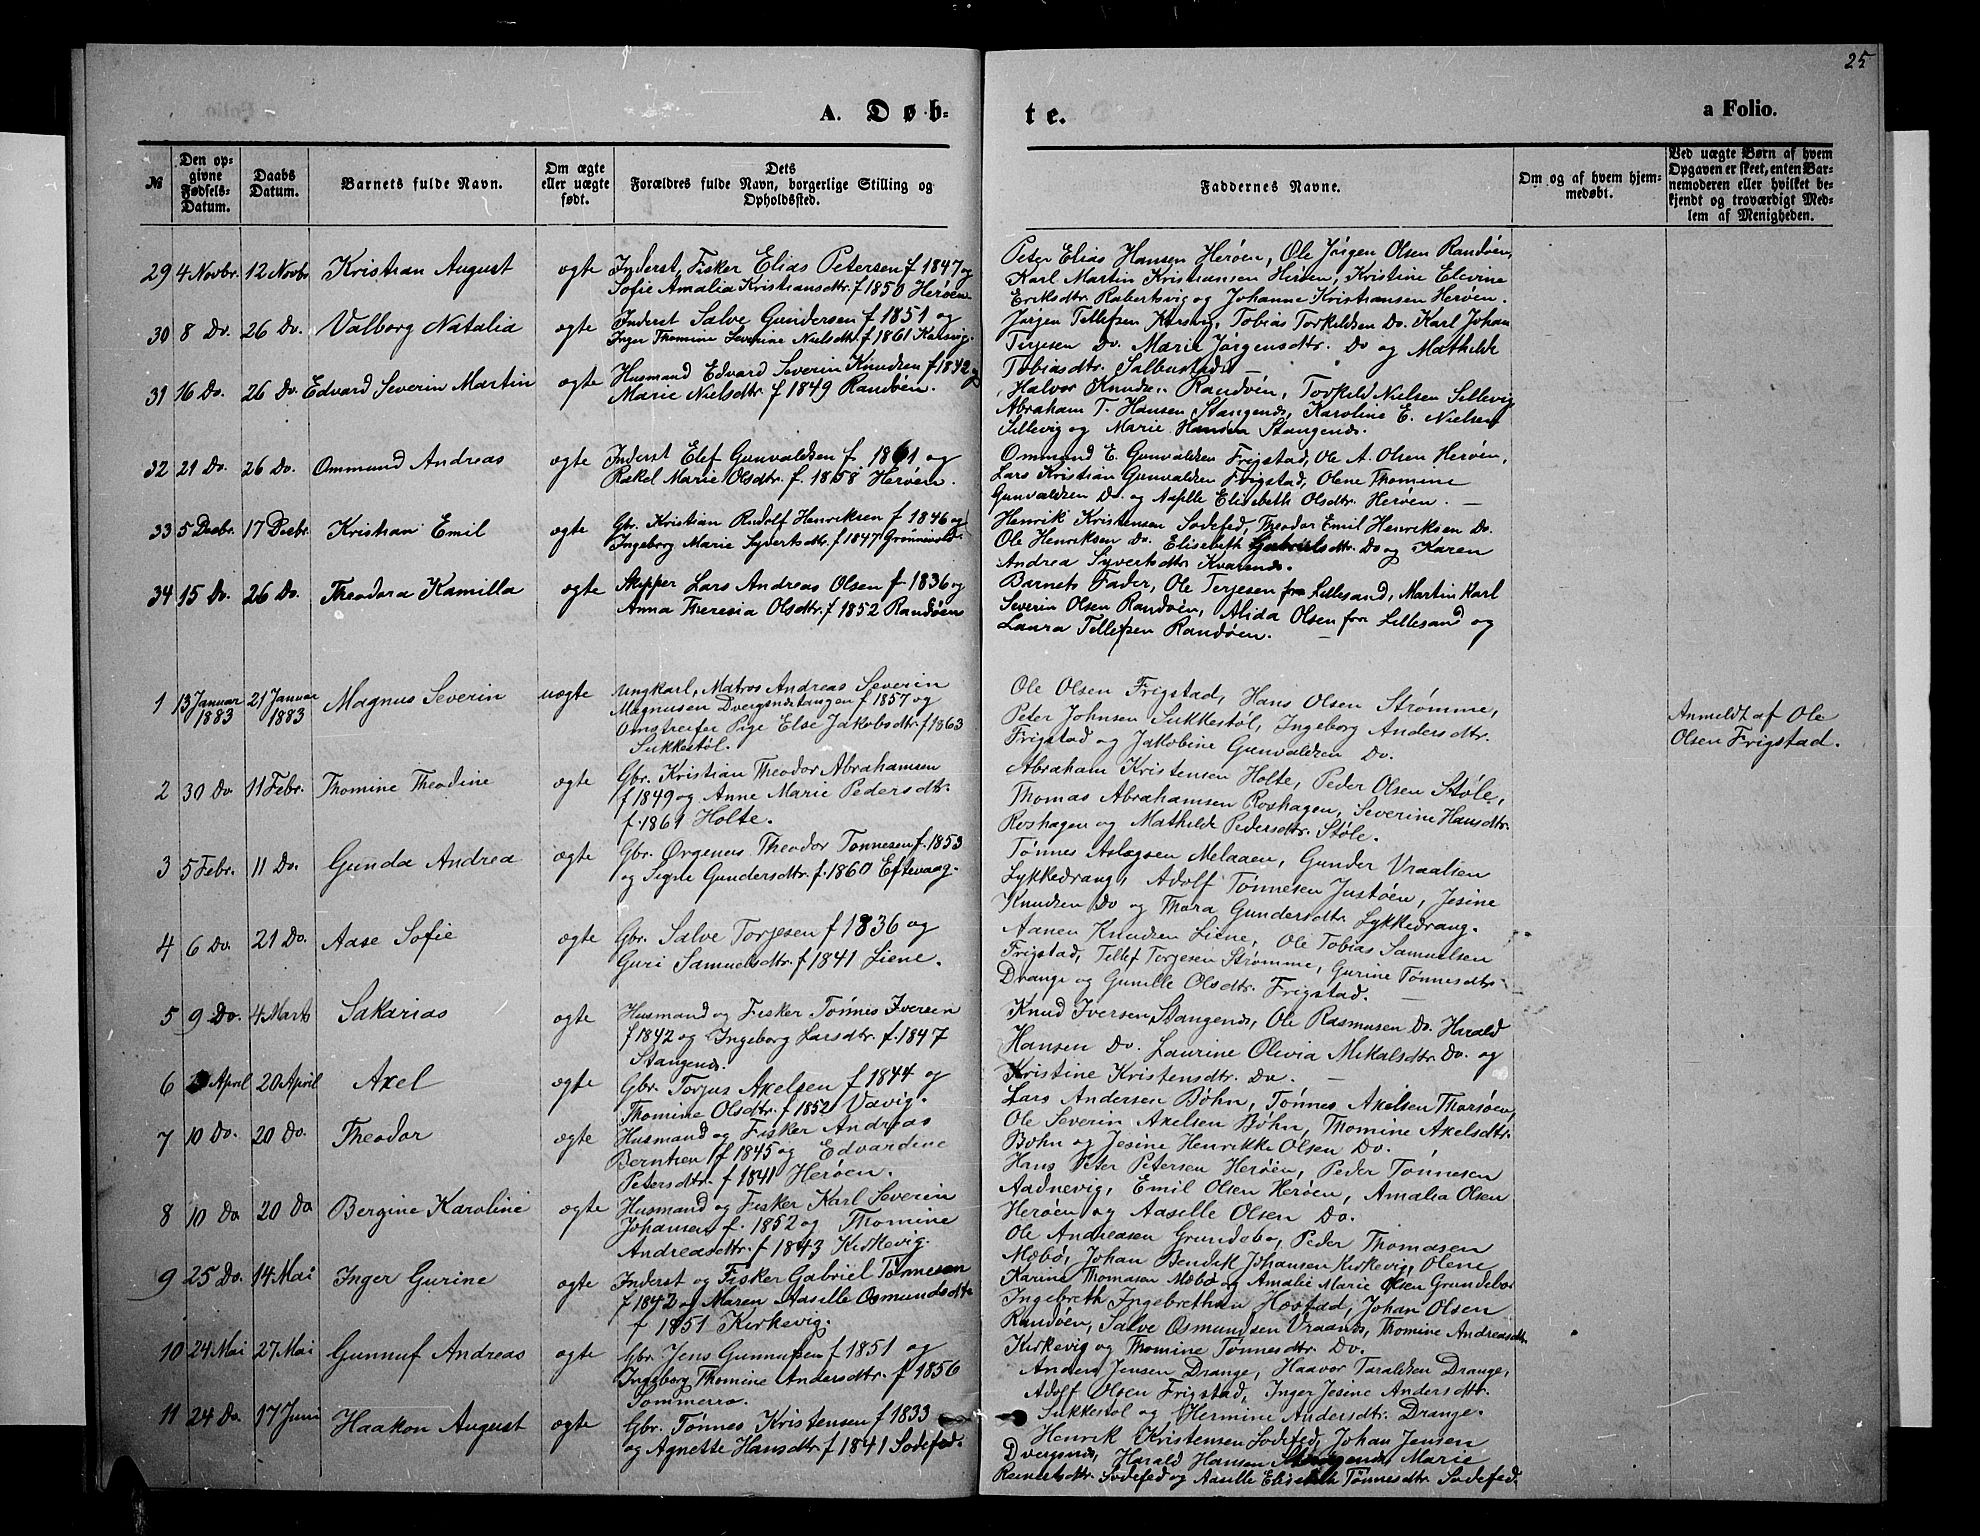 25
A. Døb-
te.
a Folio.
№
Den op-
givne
Fødsels-
Datum.
Daabs
Datum.
Barnets fulde Navn.
Om ægte
eller uægte
født.
Dets
Forældres fulde Navn, borgerlige Stilling og
Opholdssted.
Faddernes Navne.
Om og af hvem hjem-
medøbt.
Ved uægte Børn af hvem
Opgaven er skeet, enten Bar-
nemoderen eller hvilket be-
kjendt og troværdigt Med-
lem af Menigheden.
29 4 Novbr. 12 Novbr Kristian August ægte Inderst, Fisker Elias Petersen f 1847 og
Sofie Amalia Kristiansdtr. f 1850 Herøen
Peter Elias Hansen Herøen, Ole Jörgen Olsen Randøen,
Karl Martin Kristiansen Herøen, Kristine Elevine
Eriksdtr. Robertsvig og Johanne Kristiansen Herøen.
30 8 Do. 26 Do. Valborg Natalia ægte Inderst Salve Gundersen f 1851 og
Inger Thomine Severine Nielsdtr. f 1861
Jørgen Tellefsen Tobias Torkildsen Do. Karl Johan
Terjesen Do. Marie Jørgensdtr. Do og Mathilde
Tobiasdtr.
31 16 Do. 26 Do. Edvard Severin Martin ægte Husmand Edvard Severin Knudsen f 1842 og
Marie Nielsdtr f 1849 Randøen.
Halvor Knudsen Randøen, Torkild Nielsen Sillevig
Abraham T. Hansen Stangenes, Karoline E. Nielsen
Sillevig og Marie Hansen Stangenes.
32 21 Do. 26 Do. Ommund Andreas ægte Inderst Elef Gunvaldsen f 1861 og
Rakel Marie Olsdtr. f. 1858 Herøen.
Ommund E. Gunvaldsen Frigstad, Ole A. Olsen Herøen,
Lars Kristian Gunvaldsen Frigstad, Olene Thomine
Gunvaldsen Do. og Aaselle Elisebeth Olsdtr. Herøen. —
33 5 Decbr. 17 Decbr. Kristian Emil ægte Gbr. Kristian Rudolf Henriksen f 1846 og
Ingeborg Marie Syvertsdtr. f 1847 Grønnevold.
Henrik Kristensen Sodefed, Theodor Emil Henriksen Do.
Ole Henriksen Do. Elisebeth Gabrielsdtr. Do og Karen
Andrea Syvertsdtr Kvarenes.
34 15 Do. 26 Do. Theodora Kamilla ægte Skipper Lars Andreas Olsen f 1836 og
Anna Theresia Olsdtr. f 1852 Randøen
Barnets Fader, Ole Terjesen fra Lillesand, Martin Karl
Severin Olsen Randøen, Alida Olsen fra Lillesand og
Laura Tellefsen Randøen. —
1 13 Januar 1883 21 Januar 1883 Magnus Severin uægte Ungkarl, Matros Andreas Severin
Magnusen Dvergsnestangen f 1857 og
Omstreifer Pige Else Jakobsdtr. f 1863
Sukkestøl.
Ole Olsen Frigstad, Hans Olsen Strømme,
Peter Johnsen Sukkestøl, Ingeborg Andersdtr.
Frigstad og Jakobine Gunvaldsen Do.
Anmeldt af Ole
Olsen Frigstad.
2 30 Do. 11 Febr. Thomine Theodine ægte Gbr. Kristian Theodor Abrahamsen
f 1849 og Anne Marie Pedersdtr.
f. 1861 Holte.
Abraham Kristensen Holte, Peder Olsen Støle,
Thomas Abrahamsen Roshagen, Severine Hansdtr.
Roshagen og Mathilde Pedersdtr. Støle.
3 5 Febr. 11 Do. Gunda Andrea ægte Gbr. Ørgenus Theodor Tønnesen f. 1853
og Signe Gundersdtr. f. 1860 Eftevaag.
Tønnes Aslagsen Melaaen, Gunder Vraalsen
Lykkedrang, Adolf Tønnesen Justøen, Jesine
Knudsen Do og Thara Gundersdtr. Lykkedrang.
4 6 Do. 21 Do. Aase Sofie ægte Gbr. Salve Torjesen f 1836 og
Guri Samuelsdtr. f 1841 Liene.
Aanen Knudsen Liene, Ole Tobias Samuelsen
Frigstad, Tellef Torjesen Strømme, Gurine Tønnesdtr.
Drange og Gunille Olsdtr. Frigstad. —
5 9 Do. 4 Marts Sakarias ægte Husmand og Fisker Tønnes Iversen
f 1842 og Ingeborg Larsdtr. f. 1847
Stangenes.
Knud Iversen Stangenes, Ole Rasmusen Do. Harald
Hansen Do. Laurine Olivia Mikalsdtr. Do. og
Kristine Kristensdtr. Do. —
6 April 20 April Axel ægte Gbr. Torjus Axelsen f 1844 og
Thomine Olsdtr. f 1852 Vævig.
Lars Andersen Bøhn, Tønnes Axelsen Tharsøen,
Ole Severin Axelsen Bøhn, Thomine Axelsdtr.
Bohn og Jesine Henrikke Olsen Do.
7 10 Do. 20 Do. Theodor ægte Husmand og Fisker Andreas
Berntsen f 1845 og Edvardine
Petersdtr. f 1841 Herøen.
Hans Peter Petersen Herøen, Peder Tønnesen
Aadnevig, Emil Olsen Herøen, Amalia Olsen
Herøen og Aaselle Olsen Do.
8 10 Do 20 Do Bergine Karoline ægte Husmand og Fisker Karl Severin
Johansen f. 1852 og Thomine
Andreasdtr. f 1843 Kirkevig.
Ole Andreasen Grundebo, Peder Thomasen
Mæbø, Johan Bendik Johansen Kirkevig, Olene
Karine Thomasen Mæbø og Amalie Marie Olsen Grundebo
9 25 Do. 14 Mai Inger Gurine ægte Inderst og Fisker Gabriel Tønnesen
f 1842 og Maren Aaselle Osmundsdtr
f 1851 Kirkevig.
Ingebreth Ingebrethsen Hovstad, Johan Olsen
Randøen, Salve Osmundsen Vraanes, Thomine Andreasdtr.
Kirkevig og Thomine Tønnesdtr. Do.
10 24 Mai 27 Mai Gunnuf Andreas ægte Gbr. Jens Gunnufsen f 1851 og
Ingeborg Thomine Andersdtr. f 1856
Sommerro.
Anders Jensen Drange, Haavor Taraldsen Drange,
Adolf Olsen Frigstad, Inger Jesine Andersdtr.
Sukkestøl og Hermine Andersdtr. Drange.
11 24 Do. 17 Juni Haakon August ægte Gbr. Tønnes Kristensen f 1833
og Agnette Hansdtr f 1841 Sodefed.
Henrik Kristensen Sodefed, Johan Jensen
Dvergsnes, Harald Hansen Stangenes Marie
Reinertsdtr. Sodefed og Aaselle Elisebeth Tønnesdtr. Sodefed.